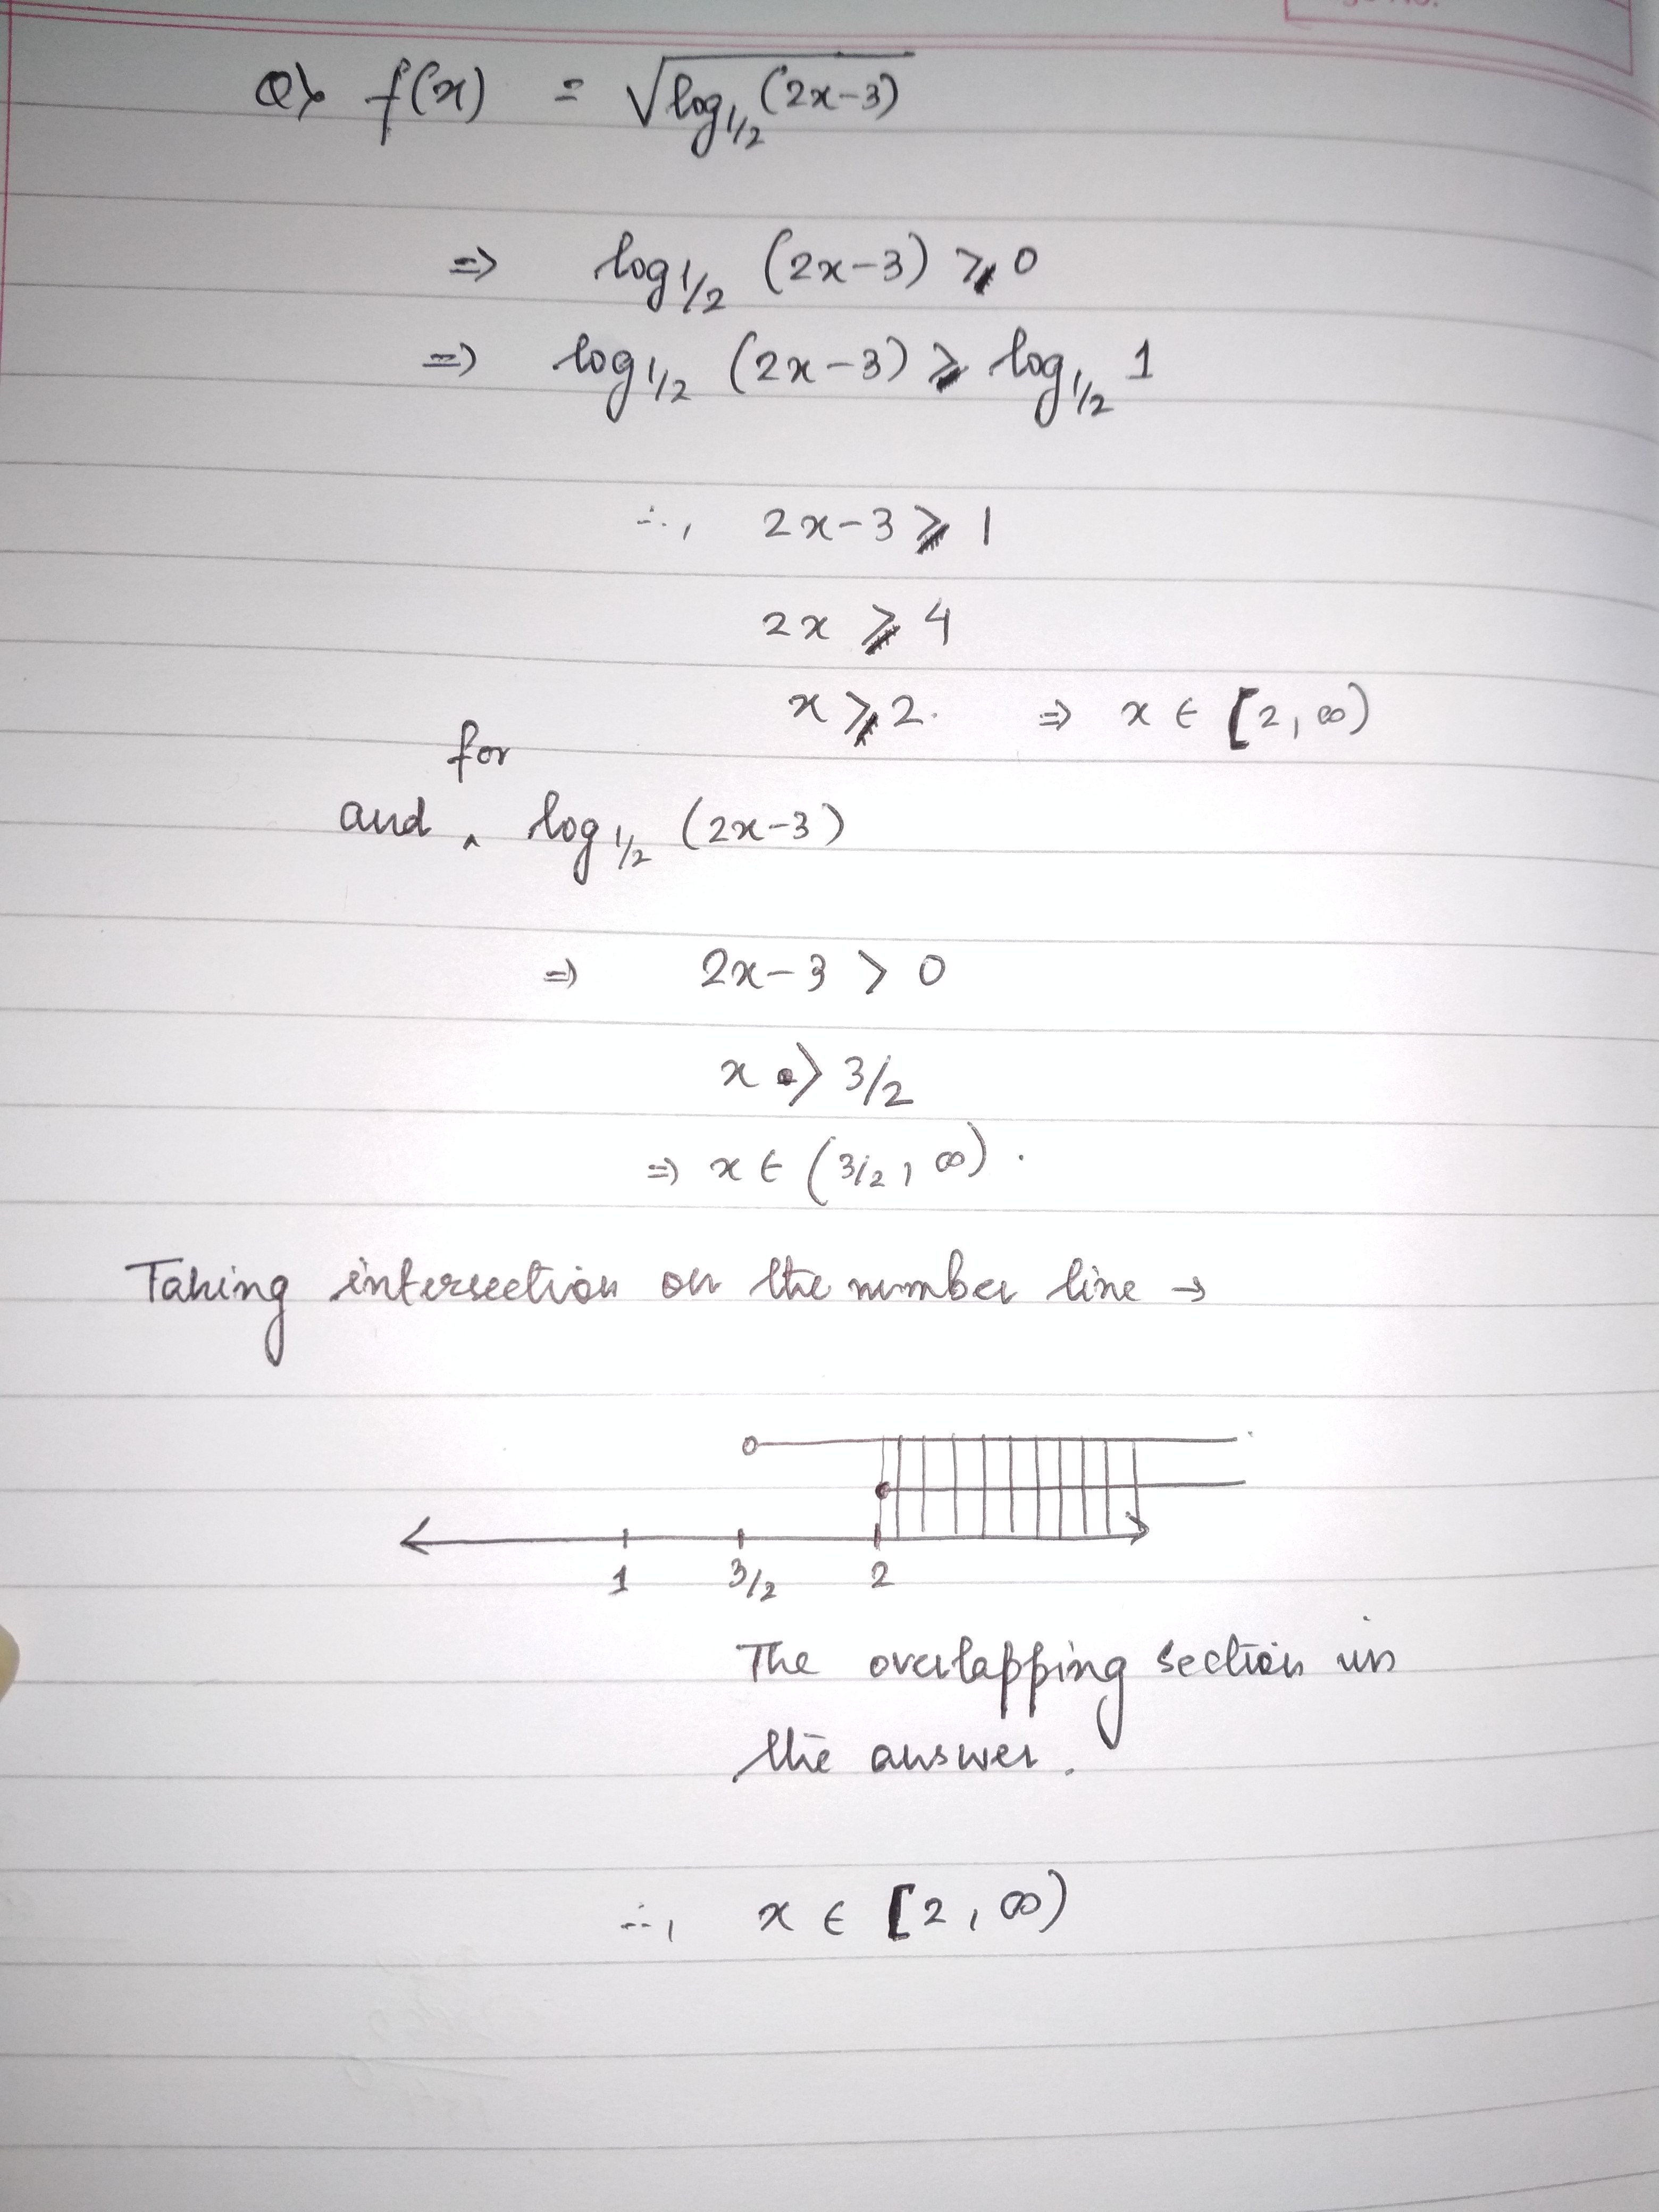 Q) f(x) = √log1/2 (2x-3)
⇒ log1/2 (2x-3) ⩾ 0
⇒ log1/2 (2x-3) ⩾ log1/2 1
∴, 2x-3 ⩾ 1
2x ⩾ 4
x ⩾ 2. ⇒ x ∈ [2, ∞)
for
and ‸ log1/2 (2x-3)
⇒ 2x-3 > 0
x > 3/2
⇒ x ∈ (3/2, ∞).
Taking intersection on the number line →
1 3/2 2
The overlapping section is
the answer.
∴, x ∈ [2, ∞)